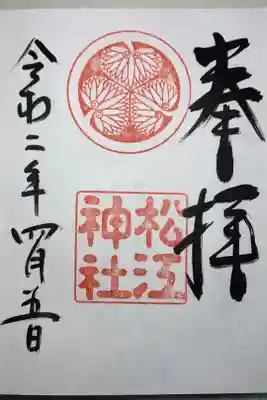 奉拝
松江
神社
令和二年四月五日